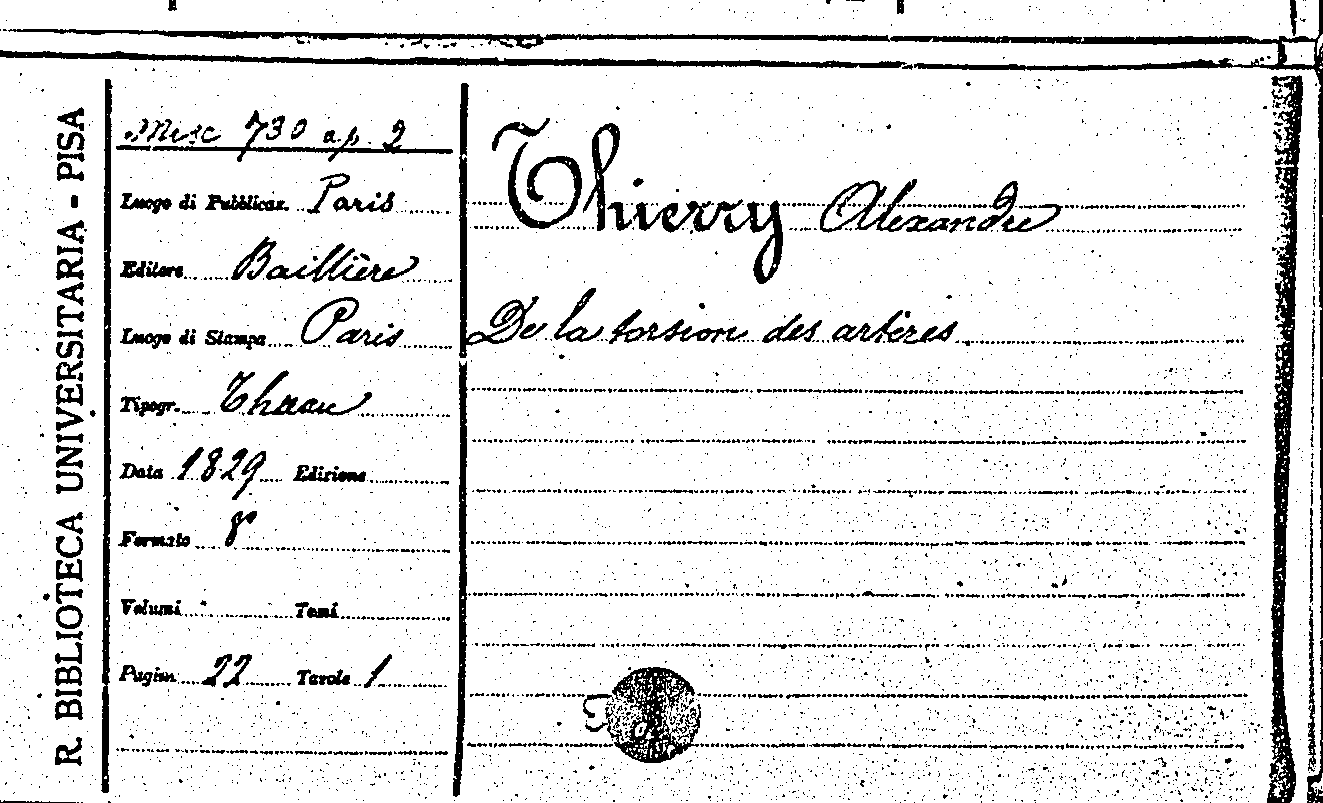 R. BIBLIOTECA UNIVERSITARIA - PISA
Misc 730 op. 2
Luogo di Pubblicaz. Paris
Editore Baillière
Luogo di Stampa Paris
Tipogr. Thuau
Data 1829 Edizione
Formato 8°
Volumi Tomi
Pagine 22 Tavole 1
Thierry Alexandre
De la torsion des artères.